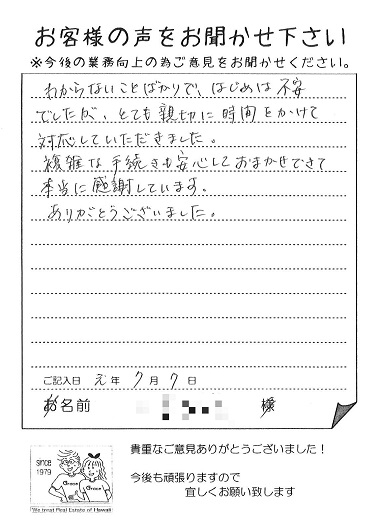 お客様の声をお聞かせ下さい
※今後の業務向上の為ご意見をお聞かせください。
わからないことばかりで、はじめは不安
でしたが、とても親切に時間をかけて
対応していただきました。
複雑な手続きも安心しておまかせできて
本当に感謝しています。
ありがとうございました。
ご記入日 元年 7月 7日
お名前 様
貴重なご意見ありがとうございました！
今後も頑張りますので
宜しくお願い致します
since
1979
Grace
Grace
We treat Real Estate of Hawaii